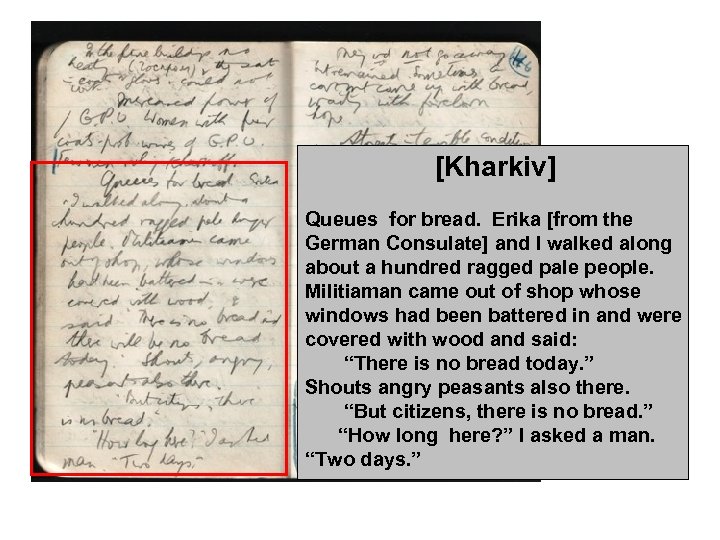 In the fine buildings no
heat
coats & gloves. could not
Increased power of
G.P.U. Women with fur
coats prob. wives of G.P.U.
Queues for bread Erika
& I walked along about a
hundred ragged pale hungry
people. Militiaman came
out of shop, whose windows
had been battered in & were
covered with wood, &
said "There is no bread and
there will be no bread
today." Shouts, angry,
peasants also there.
"But citizens, there
is no bread."
"How long here?" I asked a
man. "Two days."
They wd not go away
but remained. Sometimes a
cart wd come up with bread,
waiting with forlorn
hope.
[Kharkiv]
Queues for bread. Erika [from the
German Consulate] and I walked along
about a hundred ragged pale people.
Militiaman came out of shop whose
windows had been battered in and were
covered with wood and said:
“There is no bread today.”
Shouts angry peasants also there.
“But citizens, there is no bread.”
“How long here?” I asked a man.
“Two days.”